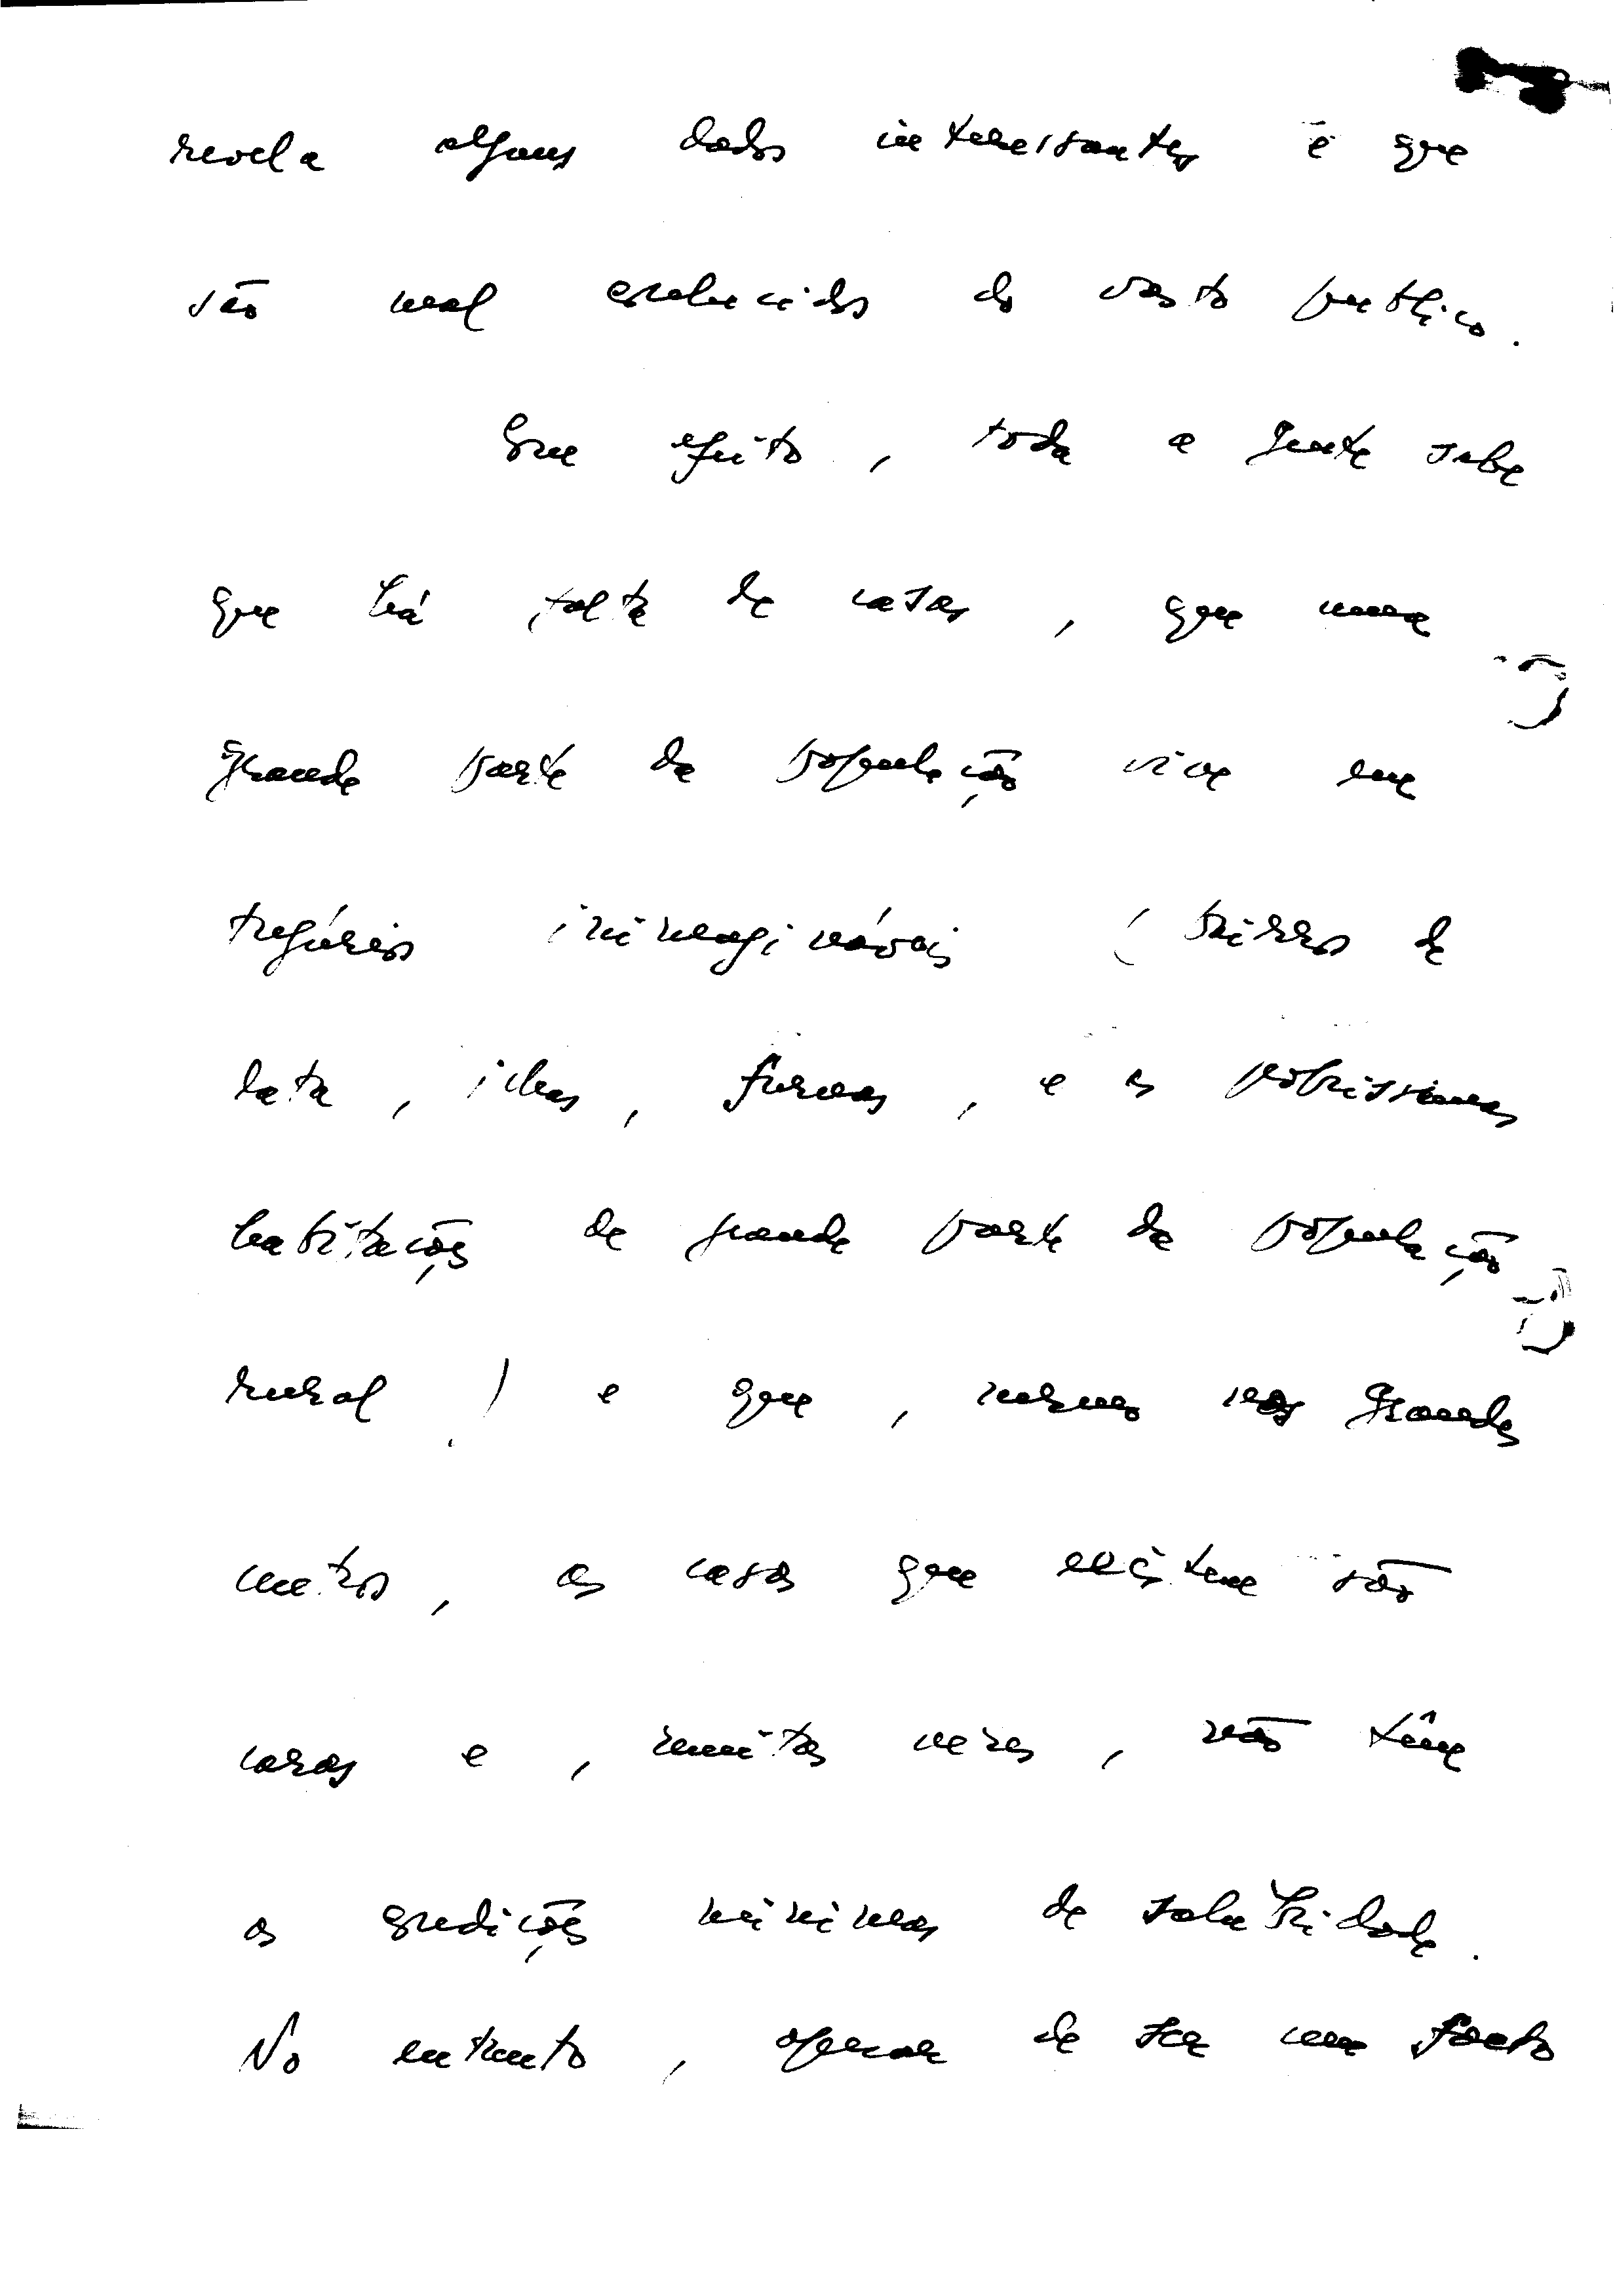 revela alguns dados interessantes e que
são mal conhecidos do vasto publico.
Com efeito, toda a gente sabe
que há falta de casas, que uma
grande parte da população vive em
tugúrios inimagináveis (bairros de
lata, ilhas, furnas, e as pobrissimas
habitações de grande parte da população
rural) e que, mesmo nos grandes
centros, as casas que existem são
caras e, muitas vezes, não têm
as condições minimas de salubridade.
No entanto, apesar de ser um facto